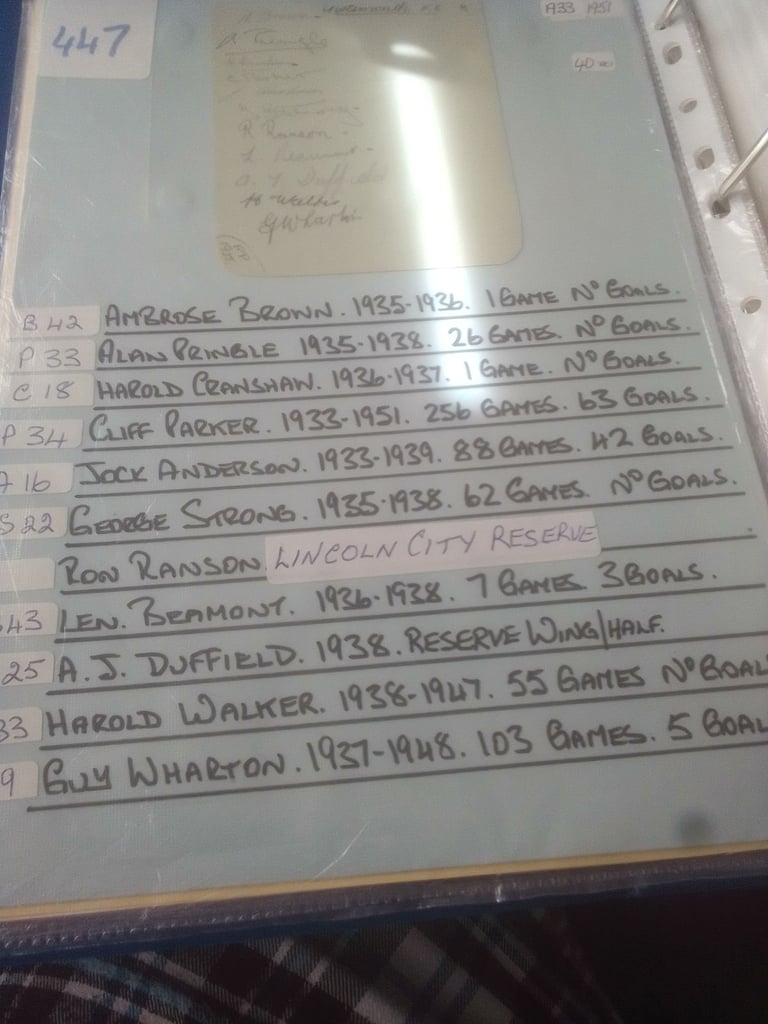 447
A33 1951
40
A Pringle
R Ranson -
A. J Duffield
H Walker
G Wharton
B 42 AMBROSE BROWN. 1935-1936. 1 GAME Nº GOALS.
P 33 ALAN PRINGLE 1935-1938. 26 GAMES. Nº GOALS.
C 18 HAROLD CRANSHAW. 1936-1937. 1 GAME. Nº GOALS.
P 34 CLIFF PARKER. 1933-1951. 256 GAMES. 63 GOALS.
A 16 JOCK ANDERSON. 1933-1939. 88 GAMES. 42 GOALS.
S 22 GEORGE STRONG. 1935-1938. 62 GAMES. Nº GOALS.
RON RANSON LINCOLN CITY RESERVE .
43 LEN. BEAMONT. 1936-1938. 7 GAMES 3 GOALS.
25 A. J. DUFFIELD. 1938. RESERVE WING/HALF.
33 HAROLD WALKER. 1938-1947. 55 GAMES Nº GOAL
9 GUY WHARTON. 1937-1948. 103 GAMES. 5 GOAL